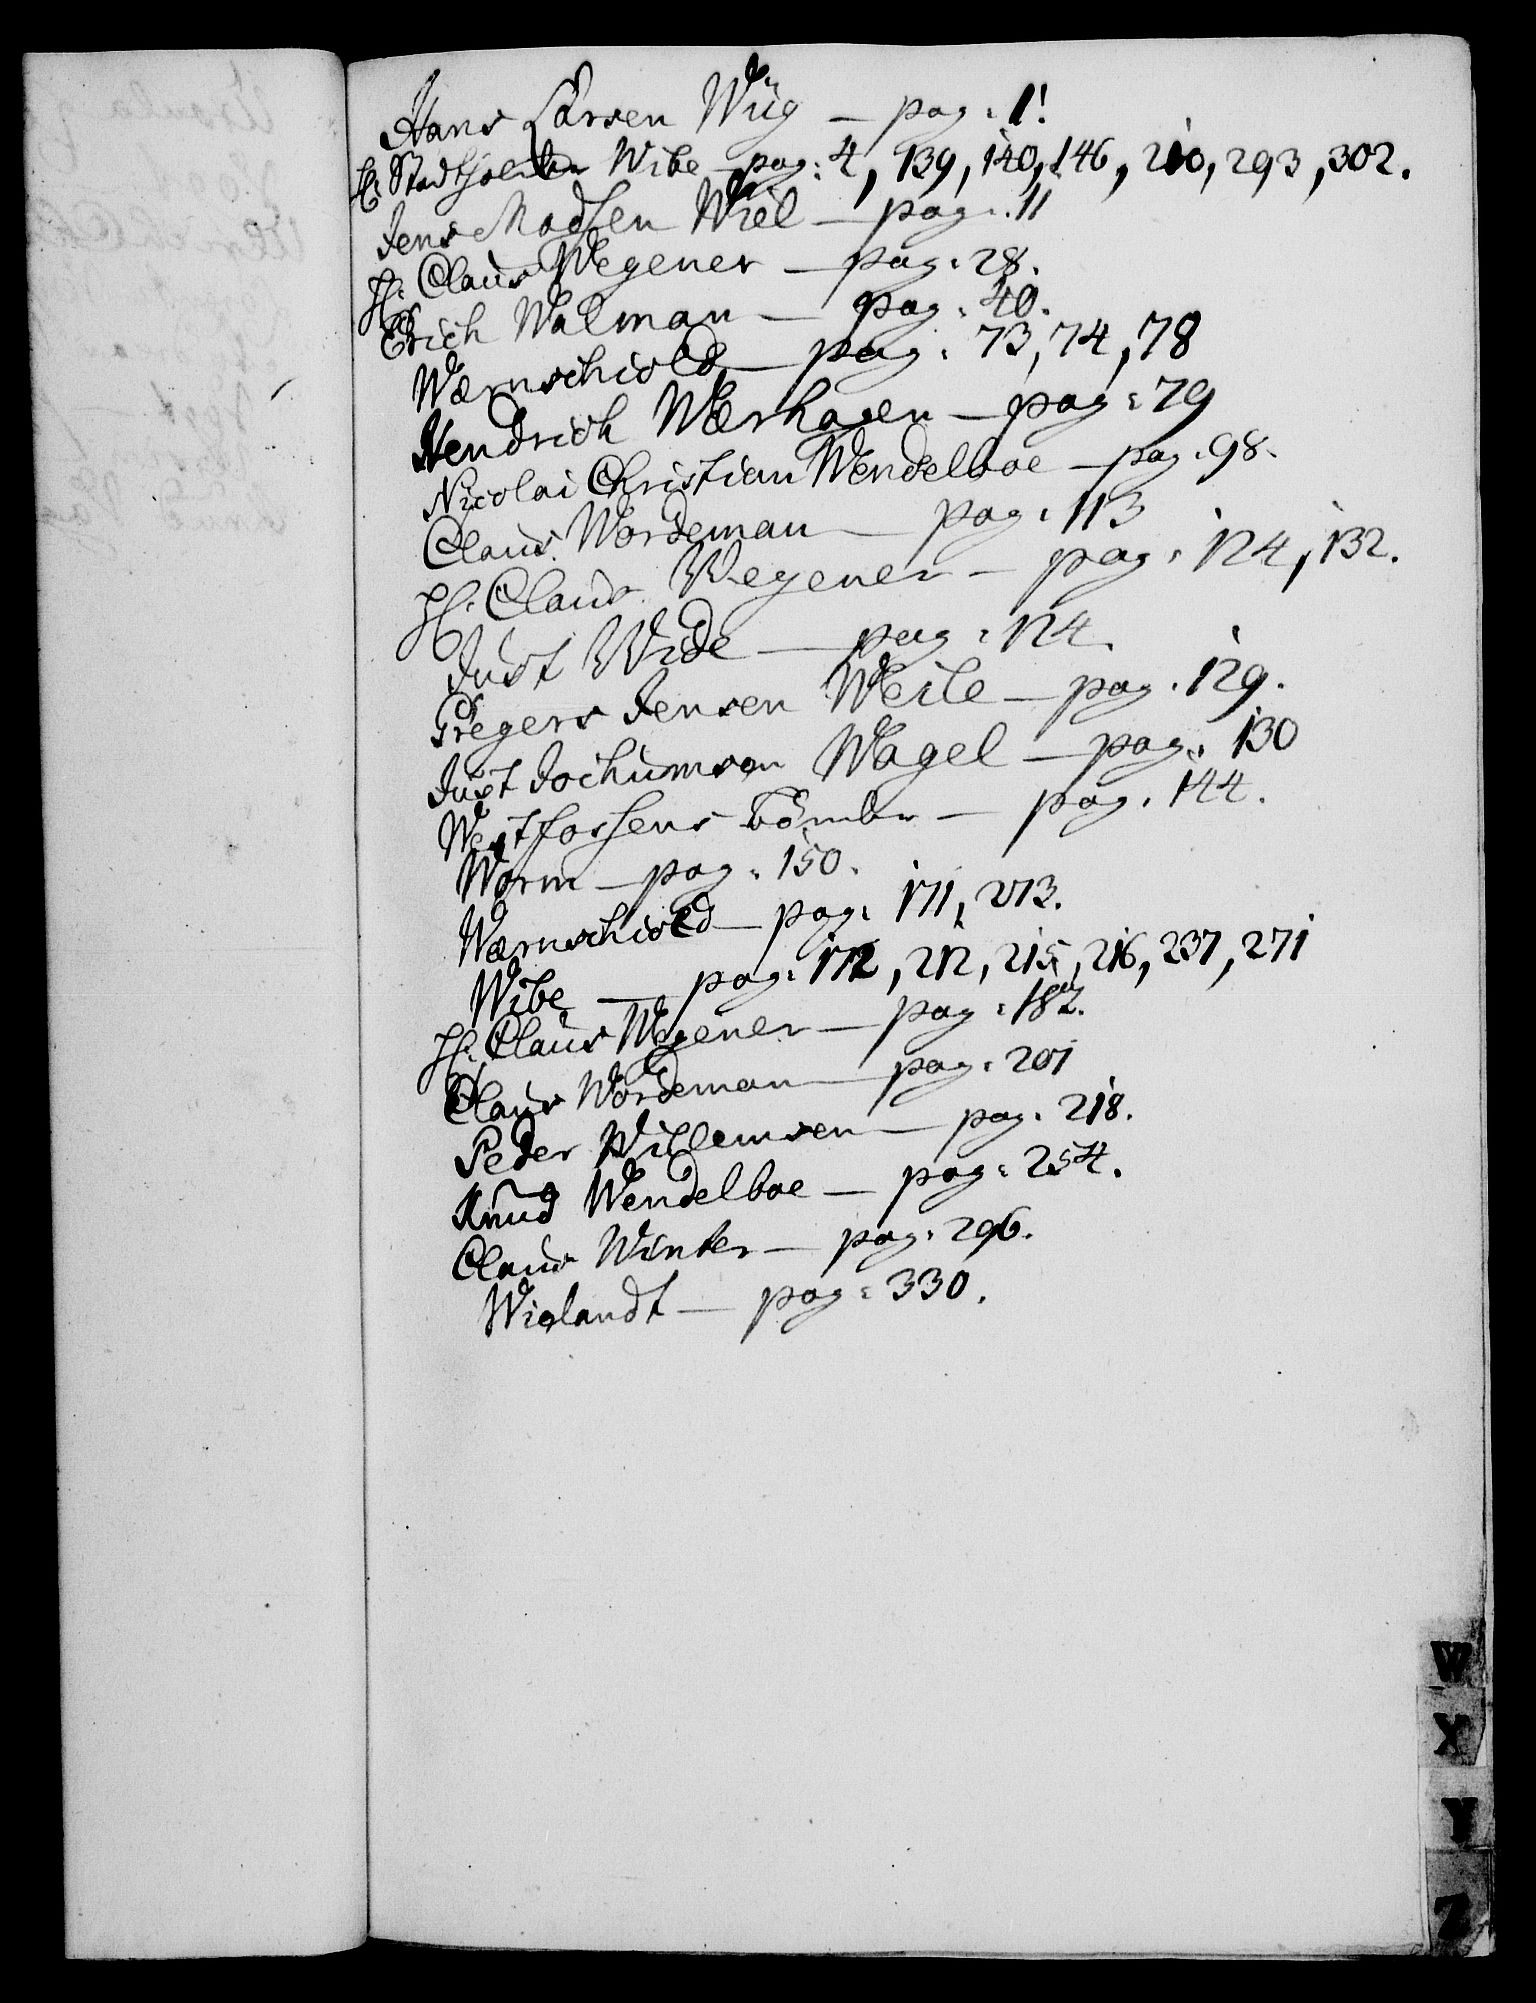 Hans Larsen Wüg – pag: 1!
H: Stadtholder Wibe – pag: 4, 139, 140, 146, 210, 293, 302.
Jens Madsen Wiel – pag: 11
H: Claus Wegener – pag: 28.
Erich Walman – pag: 40.
Wærnschiold – pag: 73, 74, 78
Hendrich Wærhagen – pag: 79
Nicolai Christian Wendelboe – pag: 98.
Claus Wordeman – pag: 113
H: Claus Wegener – pag: 124, 132.
Just Wide – pag: 124.
Pregers Jensen Weile – pag: 129.
Just Jochumsen Wagel – pag: 130
Westfossens – pag: 144.
Worm – pag: 150.
Wærnschiold – pag: 171, 273.
Wibe – pag: 172, 212, 215, 216, 237, 271
H: Claus Wegener – pag: 182.
Claus Wordeman – pag: 201
Peder Willemsen – pag: 218.
Knud Wendelboe – pag: 254.
Claus Winter – pag: 296.
Wielandt – pag: 330.
W
X
Y
Z